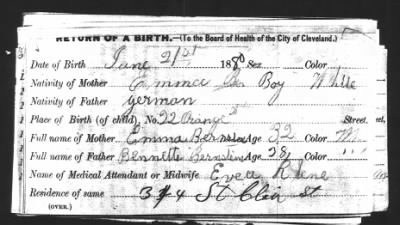 RETURN OF A BIRTH.—(To the Board of Health of the City of Cleveland.)
Date of Birth June 21st 1880 Sex Color
Nativity of Mother Boy White
Nativity of Father German
Place of Birth (of child), No 22 Orange St Street.
Full name of Mother Emma Bernstein Age 32 Color
Full name of Father Bennette Bernstin Age 38 Color " "
Name of Medical Attendant or Midwife Eva
Residence of same 344 St Clair st
(OVER.)